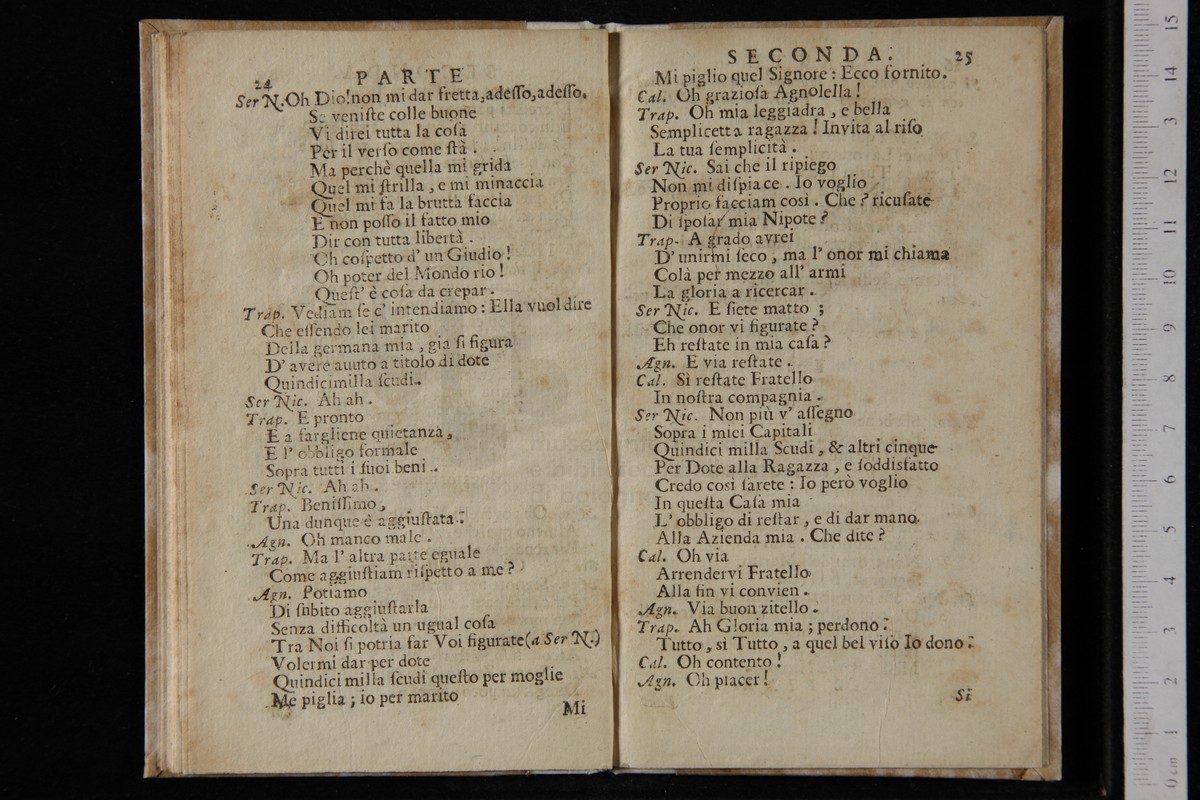 24 PARTE
Ser N. Oh Dio! non mi dar fretta, adeſſo, adeſſo.
Se veniſte colle buone
Vi direi tutta la coſa
Per il verſo come ſtà .
Ma perchè quella mi grida
Quel mi ſtrilla , e mi minaccia
Quel mi fa la brutta faccia
E non poſſo il fatto mio
Dir con tutta libertà .
Oh coſpetto d' un Giudio !
Oh poter del Mondo rio !
Queſt' è coſa da crepar .
Trap. Vediam ſe c' intendiamo : Ella vuol dire
Che eſſendo lei marito
Della germana mia , gia ſi figura
D' avere avuto a titolo di dote
Quindicimilla ſcudi.
Ser Nic. Ah ah .
Trap. E pronto
E a fargliene quietanza ,
E l' obbligo formale
Sopra tutti i ſuoi beni .
Ser Nic. Ah ah .
Trap. Beniſſimo ,
Una dunque è aggiuſtata .
Agn. Oh manco male .
Trap. Ma l' altra parte eguale
Come aggiuſtiam riſpetto a me ?
Agn. Potiamo
Di ſubito aggiuſtarla
Senza difficoltà un ugual coſa
Tra Noi ſi potria far Voi figurate (a Ser N.)
Volermi dar per dote
Quindici milla ſcudi queſto per moglie
Me piglia ; io per marito
Mi
SECONDA. 25
Mi piglio quel Signore : Ecco fornito.
Cal. Oh grazioſa Agnolella !
Trap. Oh mia leggiadra , e bella
Semplicetta ragazza ! Invita al riſo
La tua ſemplicità .
Ser Nic. Sai che il ripiego
Non mi diſpiace . Io voglio
Proprio facciam così . Che ? ricuſate
Di ſpoſar mia Nipote ?
Trap. A grado avrei
D' unirmi ſeco , ma l' onor mi chiama
Colà per mezzo all' armi
La gloria a ricercar .
Ser Nic. E ſiete matto ;
Che onor vi figurate ?
Eh reſtate in mia caſa ?
Agn. E via reſtate .
Cal. Sì reſtate Fratello
In noſtra compagnia .
Ser Nic. Non più v' aſſegno
Sopra i miei Capitali
Quindici milla Scudi , & altri cinque
Per Dote alla Ragazza , e ſoddisfatto
Credo così ſarete : Io però voglio
In queſta Caſa mia
L' obbligo di reſtar , e di dar mano
Alla Azienda mia . Che dite ?
Cal. Oh via
Arrendervi Fratello
Alla fin vi convien .
Agn. Via buon zitello .
Trap. Ah Gloria mia ; perdono :
Tutto , sì Tutto , a quel bel viſo Io dono :
Cal. Oh contento !
Agn. Oh piacer !
Si
15
14
3
12
11
10
9
8
7
6
5
4
3
2
1
0 cm